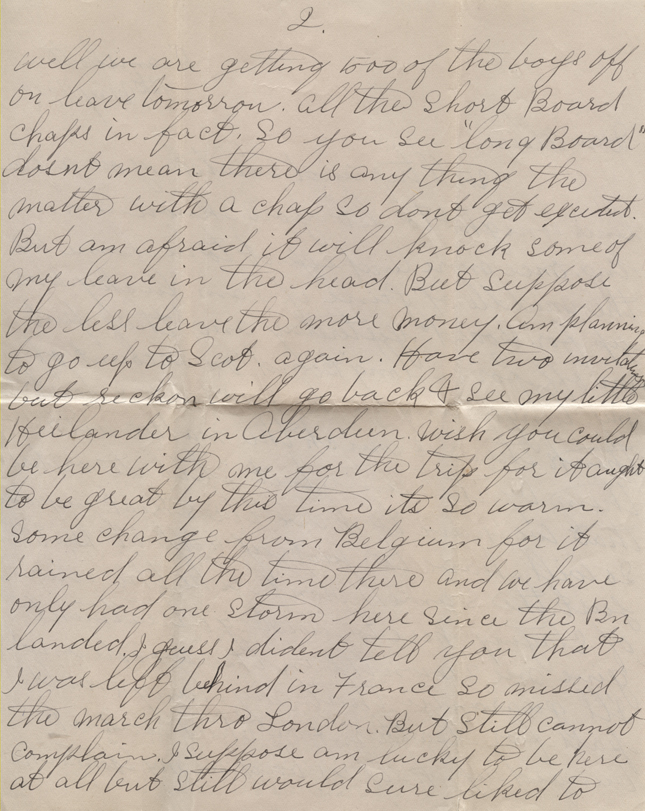 2.
well we are getting 1000 of the boys off
on leave tomorrow. All the Short Board
chaps in fact. So you see "long Board"
dosnt mean there is any thing the
matter with a chap so dont get excited.
But am afraid it will knock some of
my leave in the head. But suppose
the less leave the more money. Am planning
to go up to Scot. again. Have two invitations
but reckon will go back & see my little
Heelander in Aberdeen. Wish you could
be here with me for the trip for it aught
to be great by this time its so warm.
Some change from Belgium for it
rained all the time there and we have
only had one storm here since the Bn
landed. I guess I dident tell you that
I was left behind in France so missed
the march thro London. But still cannot
complain. I suppose am lucky to be here
at all but still would sure liked to